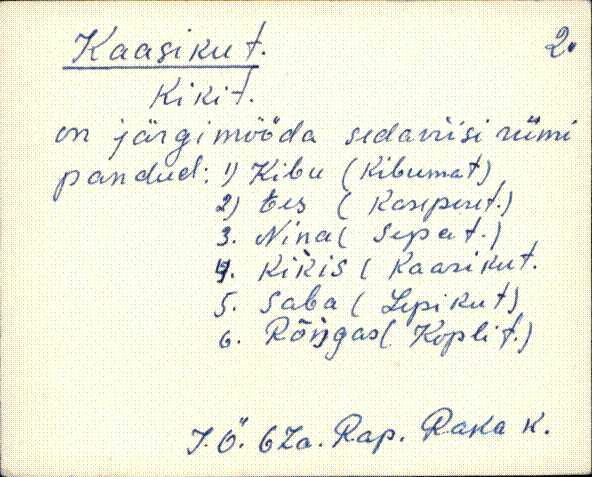 Kaasikut.
2.
Kikit.
on järgimööda sedaviisi nimi
pandud: 1) Kibu (Kibumat)
2) Ees (Kaseperet.)
3. Nina (Sepat.)
4. Kikis (Kaasikut.
5. Saba (Lepikut)
6. Rõngas (Koplit.)
J. Ö. 6 Za. Rap. Raka k.